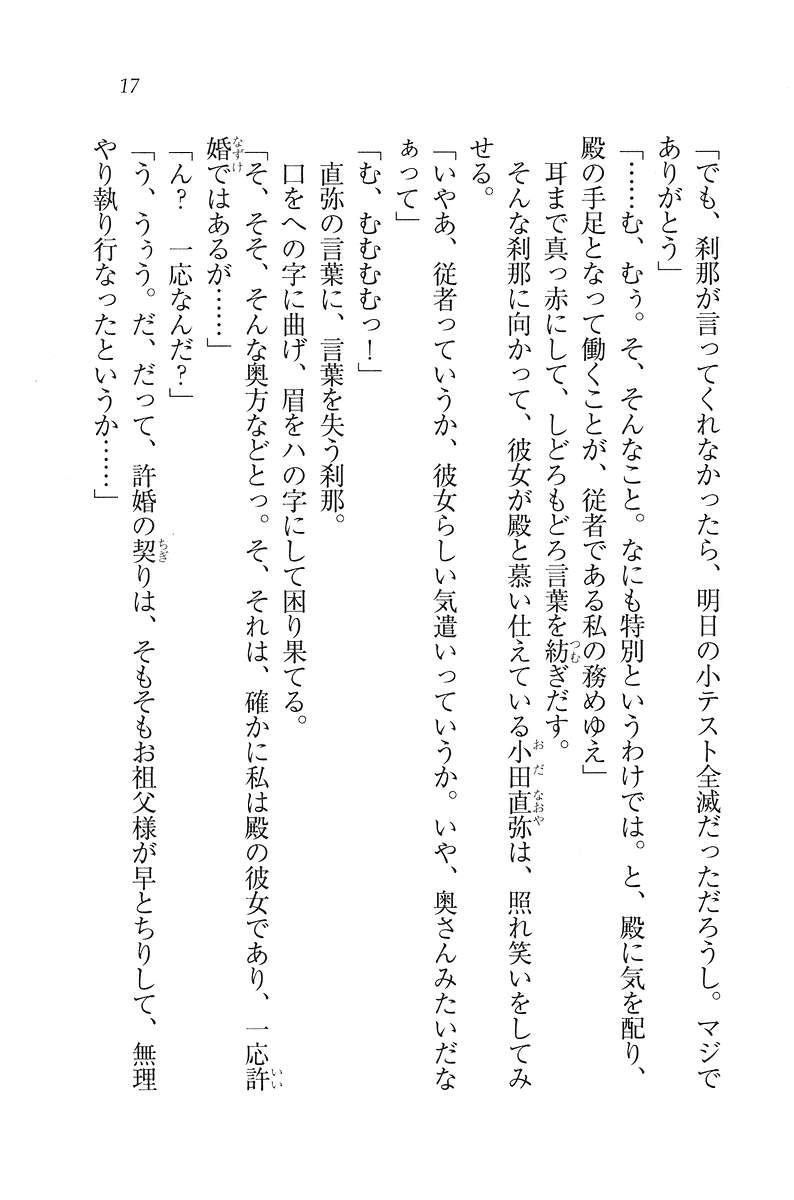 17
「でも、刹那が言ってくれなかったら、明日の小テスト全滅だっただろうし。マジで
ありがとう」
「……む、むぅ。そ、そんなこと。なにも特別というわけでは。と、殿に気を配り、
殿の手足となって働くことが、従者である私の務めゆえ」
耳まで真っ赤にして、しどろもどろ言葉を紡ぎだす。
そんな刹那に向かって、彼女が殿と慕い仕えている小田直弥は、照れ笑いをしてみ
せる。
「いやあ、従者っていうか、彼女らしい気遣いっていうか。いや、奥さんみたいだな
ぁって」
「む、むむむむっ！」
直弥の言葉に、言葉を失う刹那。
口をへの字に曲げ、眉をハの字にして困り果てる。
「そ、そそ、そんな奥方などとっ。そ、それは、確かに私は殿の彼女であり、一応許
婚ではあるが……」
「ん？　一応なんだ？」
「う、うぅう。だ、だって、許婚の契りは、そもそもお祖父様が早とちりして、無理
やり執り行なったというか……」